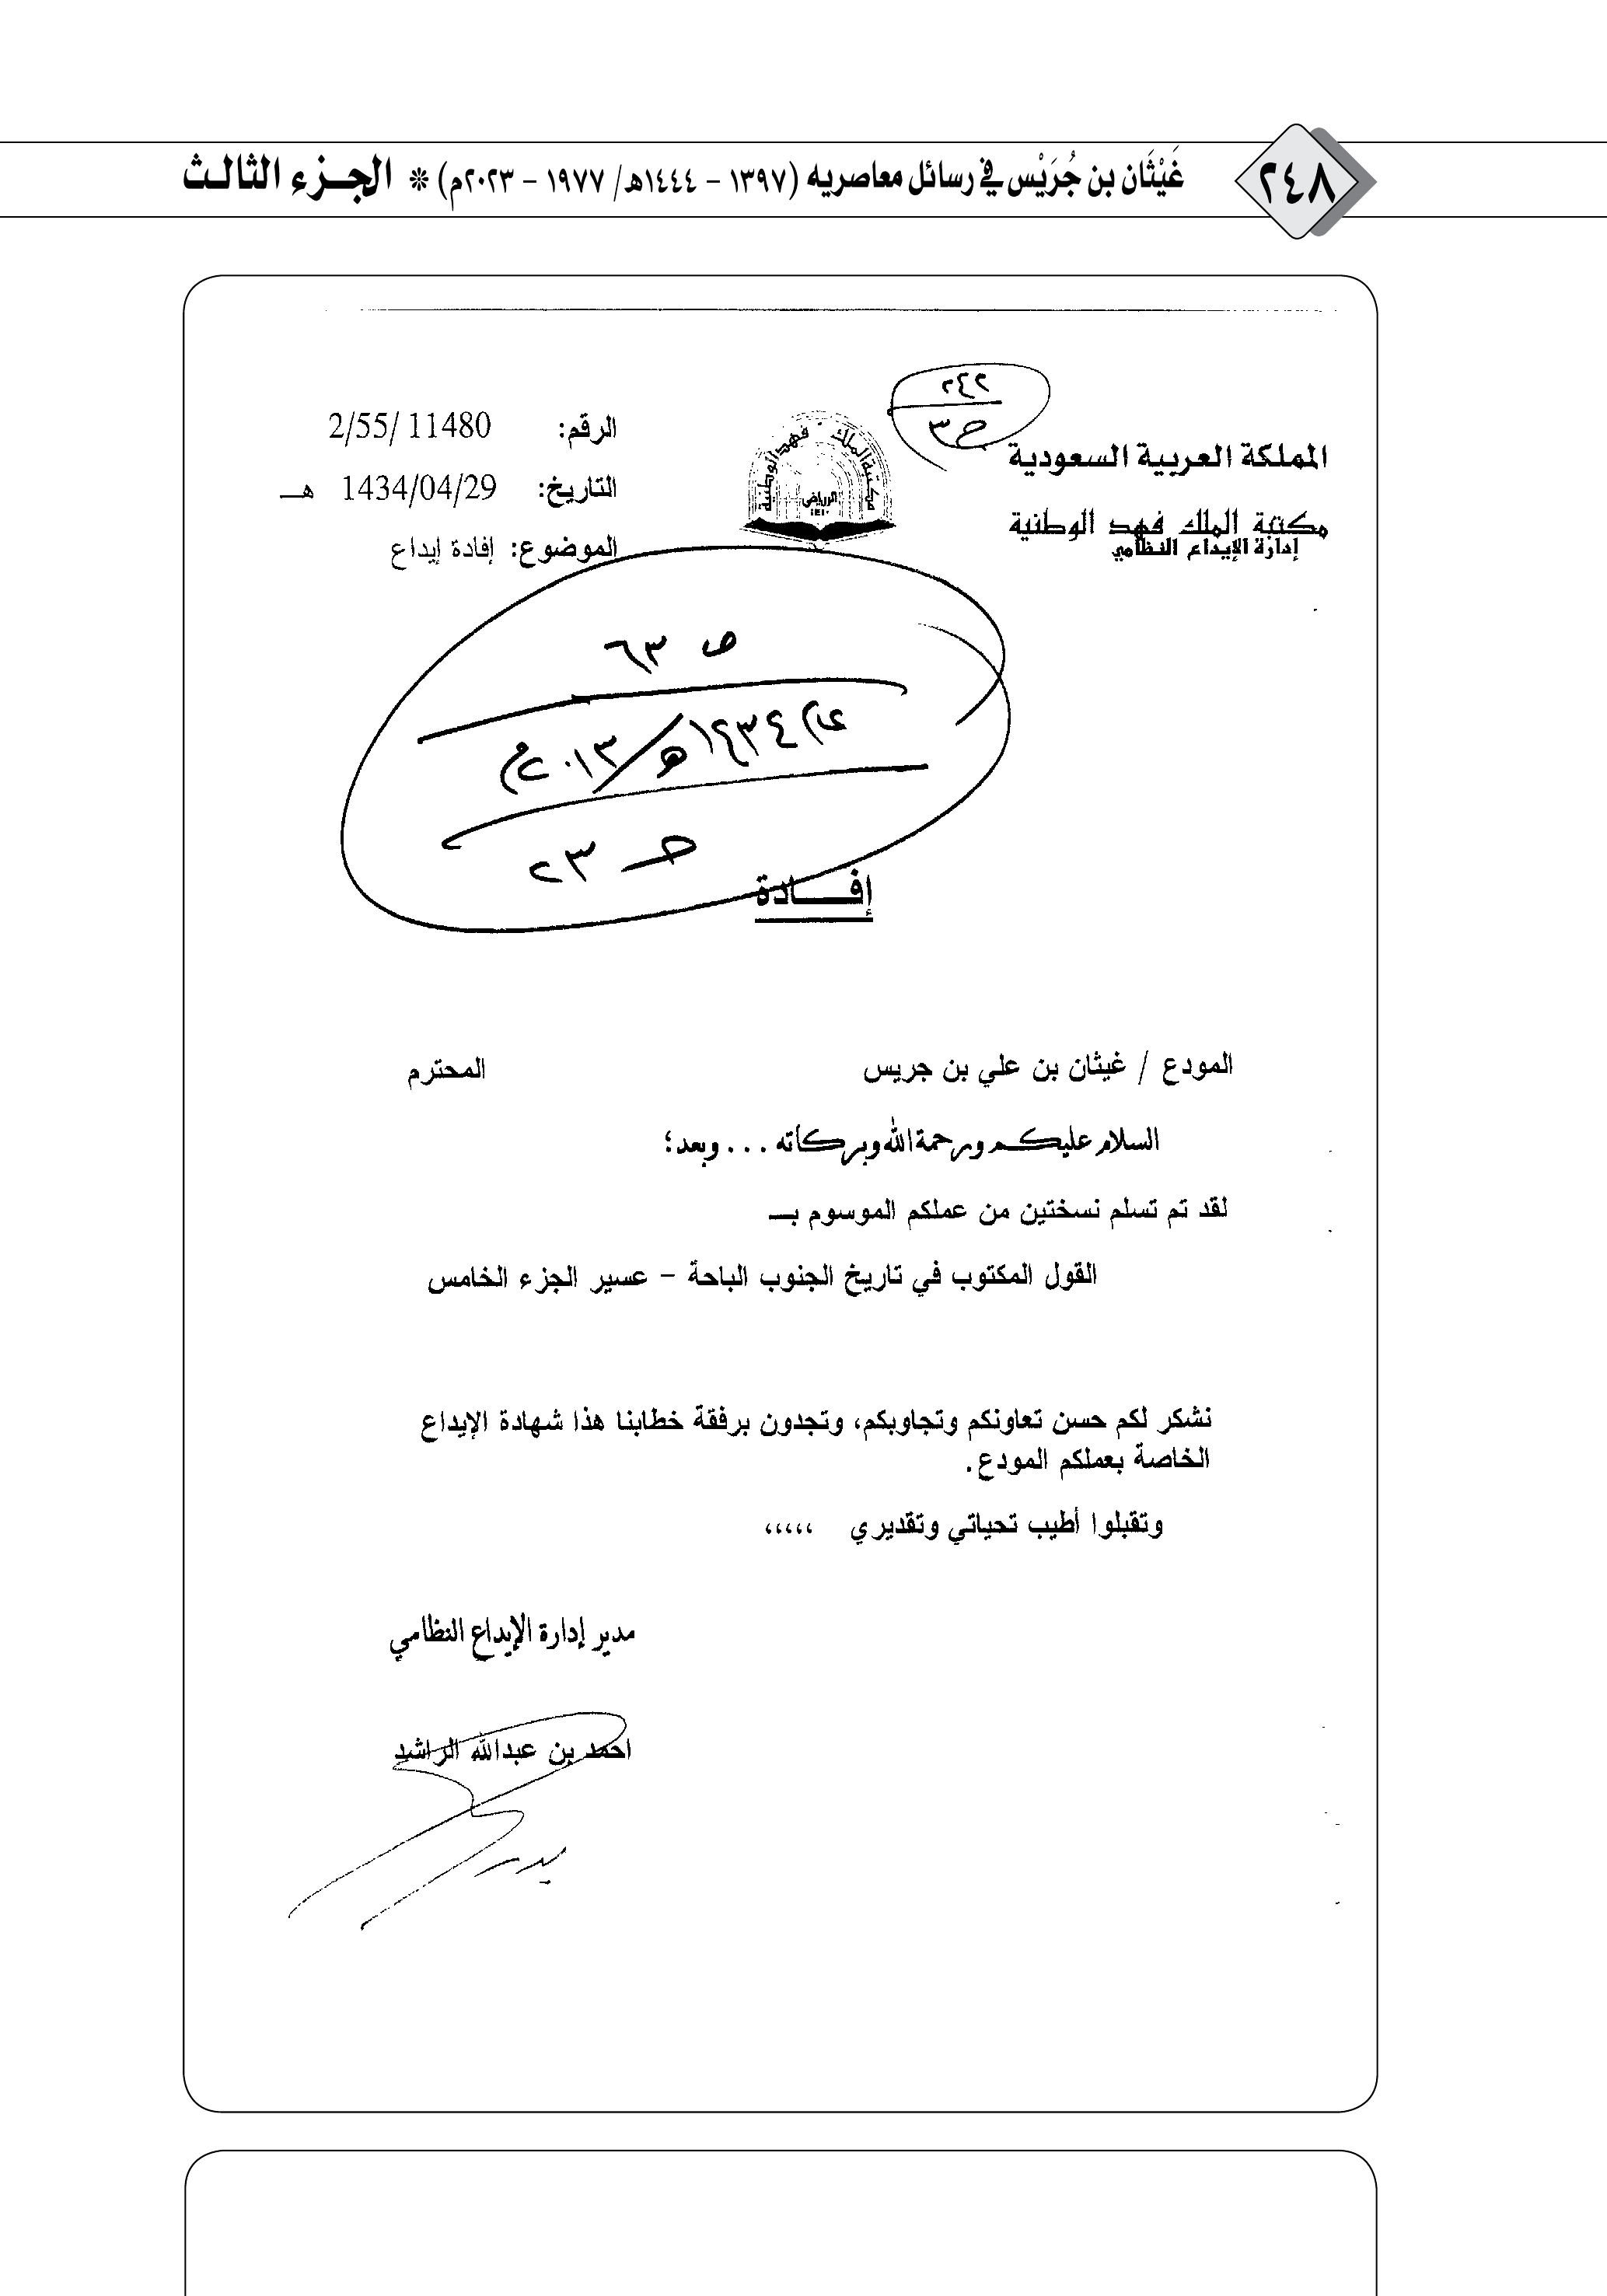 ٢٤٨
غَيْثَان بن جُرَيْس في رسائل معاصريه (١٣٩٧ - ١٤٤٤هـ/ ١٩٧٧ - ٢٠٢٣م) * الجـزء الثالث
٢٤٢
ج٣
المملكة العربية السعودية
مكتبة الملك فهد الوطنية
إدارة الإيداع النظامي
مكتبة الملك فهد الوطنية
الرياض
الرقم: 2/55/ 11480
التاريخ: 1434/04/29 هـ
الموضوع: إفادة إيداع
ص ٦٣
عام ١٤٣٤هـ/٢٠١٣م
ج ٢٣
إفـــادة
المودع / غيثان بن علي بن جريس المحترم
السلام عليكم ورحمة الله وبركاته ... وبعد؛
لقد تم تسلم نسختين من عملكم الموسوم بـ
القول المكتوب في تاريخ الجنوب الباحة - عسير الجزء الخامس
نشكر لكم حسن تعاونكم وتجاوبكم، وتجدون برفقة خطابنا هذا شهادة الإيداع
الخاصة بعملكم المودع.
وتقبلوا أطيب تحياتي وتقديري ،،،،،
مدير إدارة الإيداع النظامي
احمد بن عبدالله الراشد